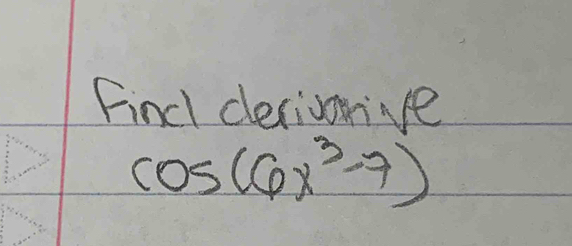 Find derivative
cos(6x³-7)